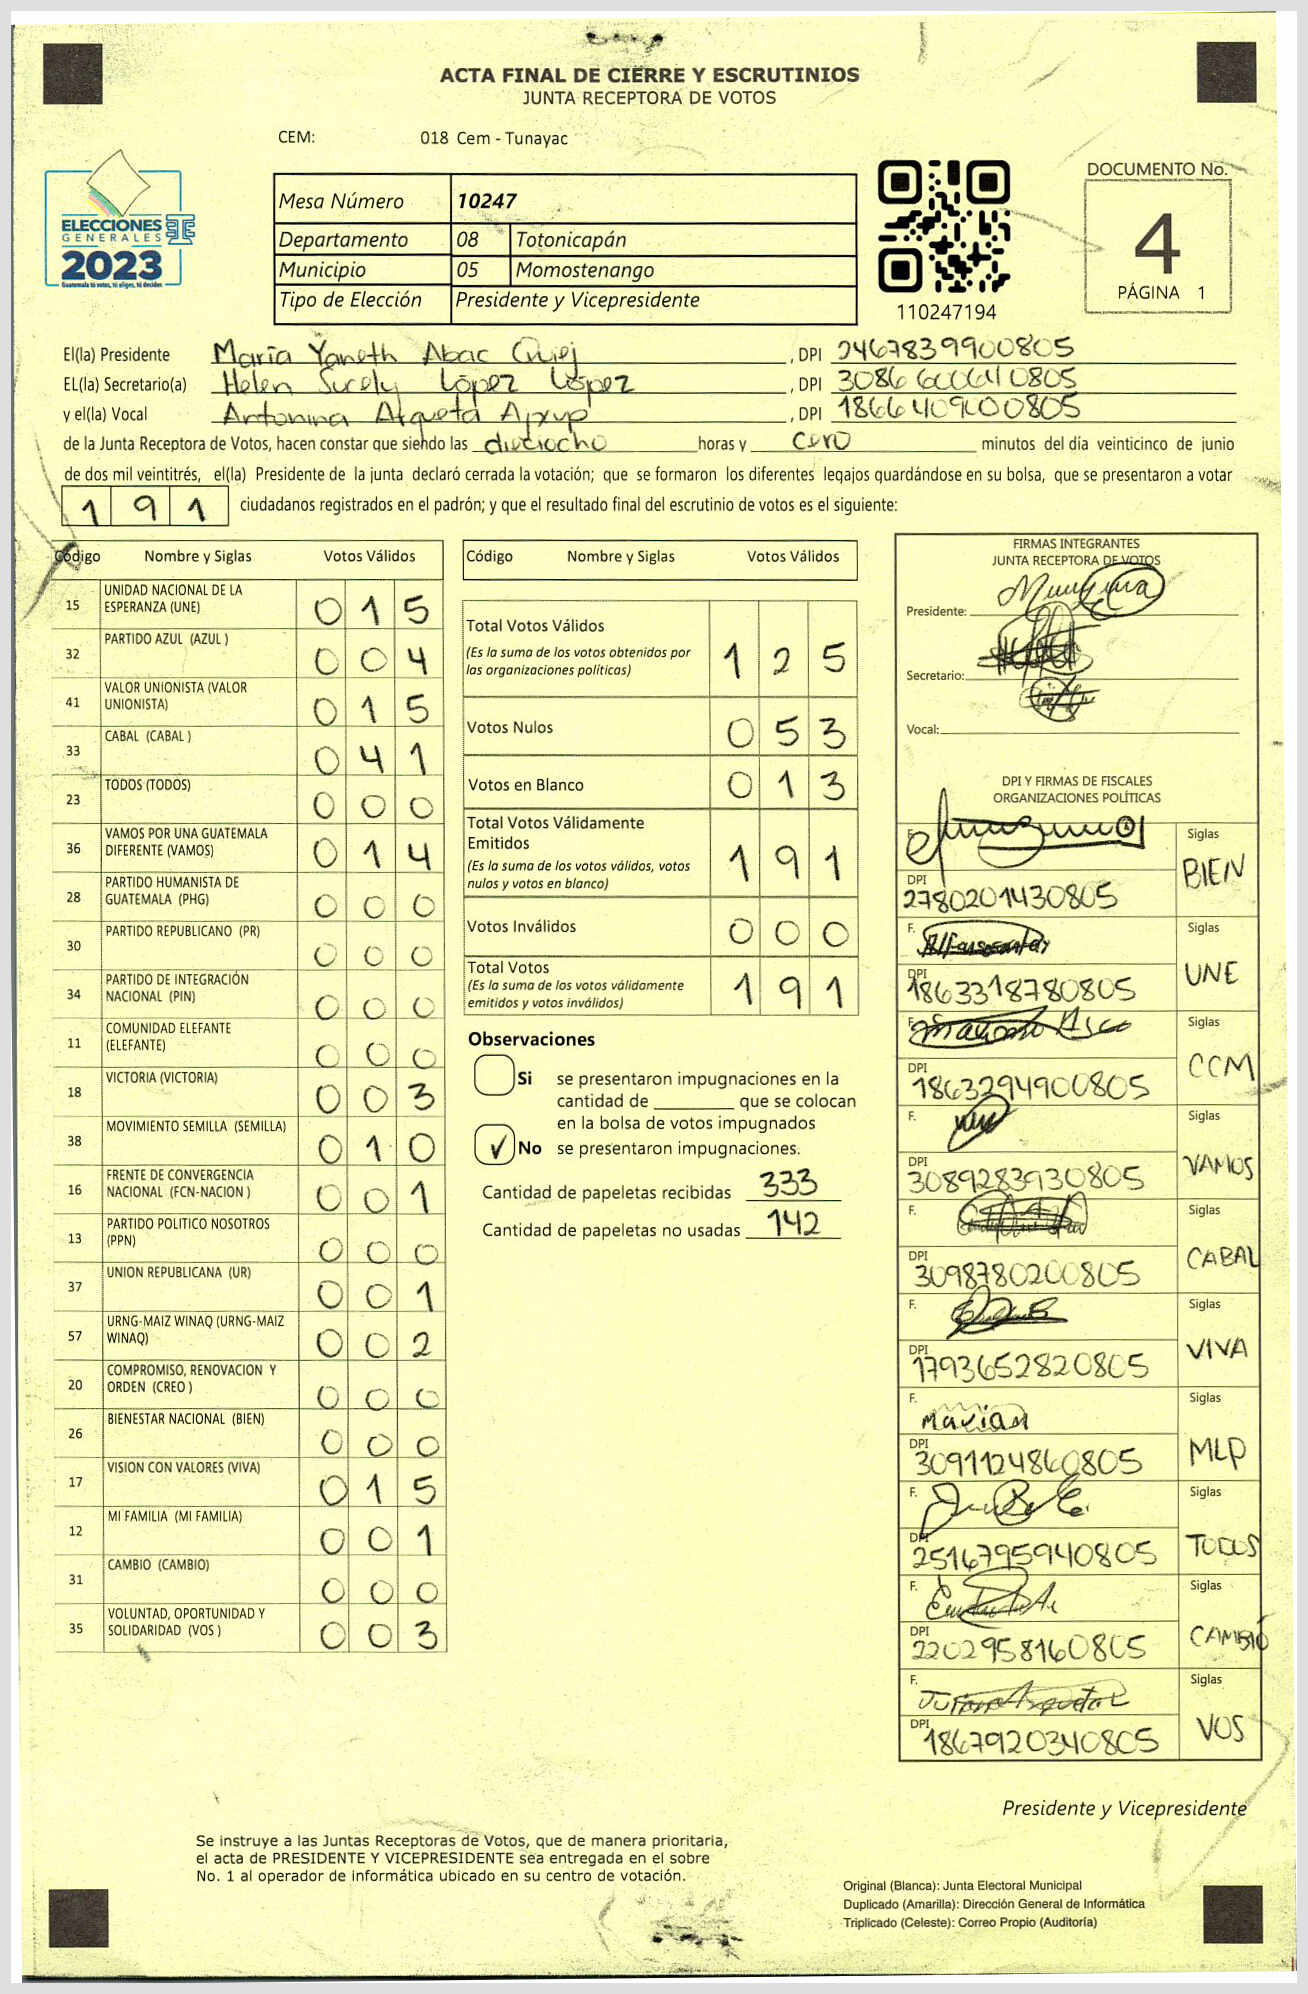 ACTA FINAL DE CIERRE Y ESCRUTINIOS
JUNTA RECEPTORA DE VOTOS
CEM: 018 Cem - Tunayac
ELECCIONES
GENERALES
2023
Guatemala tú votas, tú eliges, tú decides
Mesa Número 10247
Departamento 08 Totonicapán
Municipio 05 Momostenango
Tipo de Elección Presidente y Vicepresidente
110247194
DOCUMENTO No.
4
PÁGINA 1
El(la) Presidente María Yaneth Abac , DPI 2467839900805
EL(la) Secretario(a) Helen Sucely López López , DPI 3086600640805
y el(la) Vocal Antonina Argueta Apxup , DPI 1866409400805
de la Junta Receptora de Votos, hacen constar que siendo las dieciocho horas y cero minutos del día veinticinco de junio
de dos mil veintitrés, el(la) Presidente de la junta declaró cerrada la votación; que se formaron los diferentes legajos guardándose en su bolsa, que se presentaron a votar
191 ciudadanos registrados en el padrón; y que el resultado final del escrutinio de votos es el siguiente:
Código Nombre y Siglas Votos Válidos
15 UNIDAD NACIONAL DE LA ESPERANZA (UNE) 015
32 PARTIDO AZUL (AZUL ) 004
41 VALOR UNIONISTA (VALOR UNIONISTA) 015
33 CABAL (CABAL ) 041
23 TODOS (TODOS) 000
36 VAMOS POR UNA GUATEMALA DIFERENTE (VAMOS) 014
28 PARTIDO HUMANISTA DE GUATEMALA (PHG) 000
30 PARTIDO REPUBLICANO (PR) 000
34 PARTIDO DE INTEGRACIÓN NACIONAL (PIN) 000
11 COMUNIDAD ELEFANTE (ELEFANTE) 000
18 VICTORIA (VICTORIA) 003
38 MOVIMIENTO SEMILLA (SEMILLA) 010
16 FRENTE DE CONVERGENCIA NACIONAL (FCN-NACION ) 001
13 PARTIDO POLITICO NOSOTROS (PPN) 000
37 UNION REPUBLICANA (UR) 001
57 URNG-MAIZ WINAQ (URNG-MAIZ WINAQ) 002
20 COMPROMISO, RENOVACION Y ORDEN (CREO ) 000
26 BIENESTAR NACIONAL (BIEN) 000
17 VISION CON VALORES (VIVA) 015
12 MI FAMILIA (MI FAMILIA) 001
31 CAMBIO (CAMBIO) 000
35 VOLUNTAD, OPORTUNIDAD Y SOLIDARIDAD (VOS ) 003
Código Nombre y Siglas Votos Válidos
Total Votos Válidos 125
(Es la suma de los votos obtenidos por
las organizaciones políticas)
Votos Nulos 053
Votos en Blanco 013
Total Votos Válidamente
Emitidos 191
(Es la suma de los votos válidos, votos
nulos y votos en blanco)
Votos Inválidos 000
Total Votos 191
(Es la suma de los votos válidamente
emitidos y votos inválidos)
Observaciones
Si se presentaron impugnaciones en la
cantidad de ________ que se colocan
en la bolsa de votos impugnados
✓ No se presentaron impugnaciones.
Cantidad de papeletas recibidas 333
Cantidad de papeletas no usadas 142
FIRMAS INTEGRANTES
JUNTA RECEPTORA DE VOTOS
Presidente:
Secretario:
Vocal:
DPI Y FIRMAS DE FISCALES
ORGANIZACIONES POLÍTICAS
F. Siglas BIEN
DPI 2780201430805
F. Siglas UNE
DPI 1863318780805
F. Siglas CCM
DPI 1863294900805
F. Siglas VAMOS
DPI 3089283930805
F. Siglas CABAL
DPI 3098780200805
F. Siglas VIVA
DPI 1793652820805
F. Marian Siglas MLP
DPI 3091124860805
F. Siglas TODOS
DPI 2516795940805
F. Siglas CAMBIÓ
DPI 2202958160805
F. Siglas VOS
DPI 1867920340805
Presidente y Vicepresidente
Se instruye a las Juntas Receptoras de Votos, que de manera prioritaria,
el acta de PRESIDENTE Y VICEPRESIDENTE sea entregada en el sobre
No. 1 al operador de informática ubicado en su centro de votación.
Original (Blanca): Junta Electoral Municipal
Duplicado (Amarilla): Dirección General de Informática
Triplicado (Celeste): Correo Propio (Auditoría)